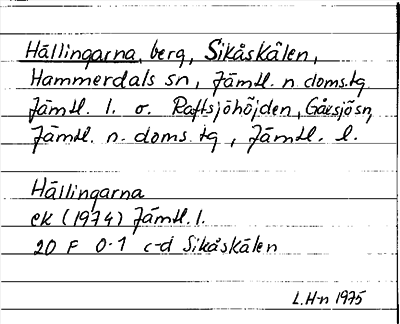 Hällingarna, berg, Sikåskälen,
Hammerdals sn, Jämtl. n. doms.tg
Jämtl. l. o. Raftsjöhöjden, Gåxsjö sn,
Jämtl. n. doms. tg, Jämtl. l.
Hällingarna
ek (1974) Jämtl. l.
20 F 0-1 c-d Sikåskälen
L. H-n 1975